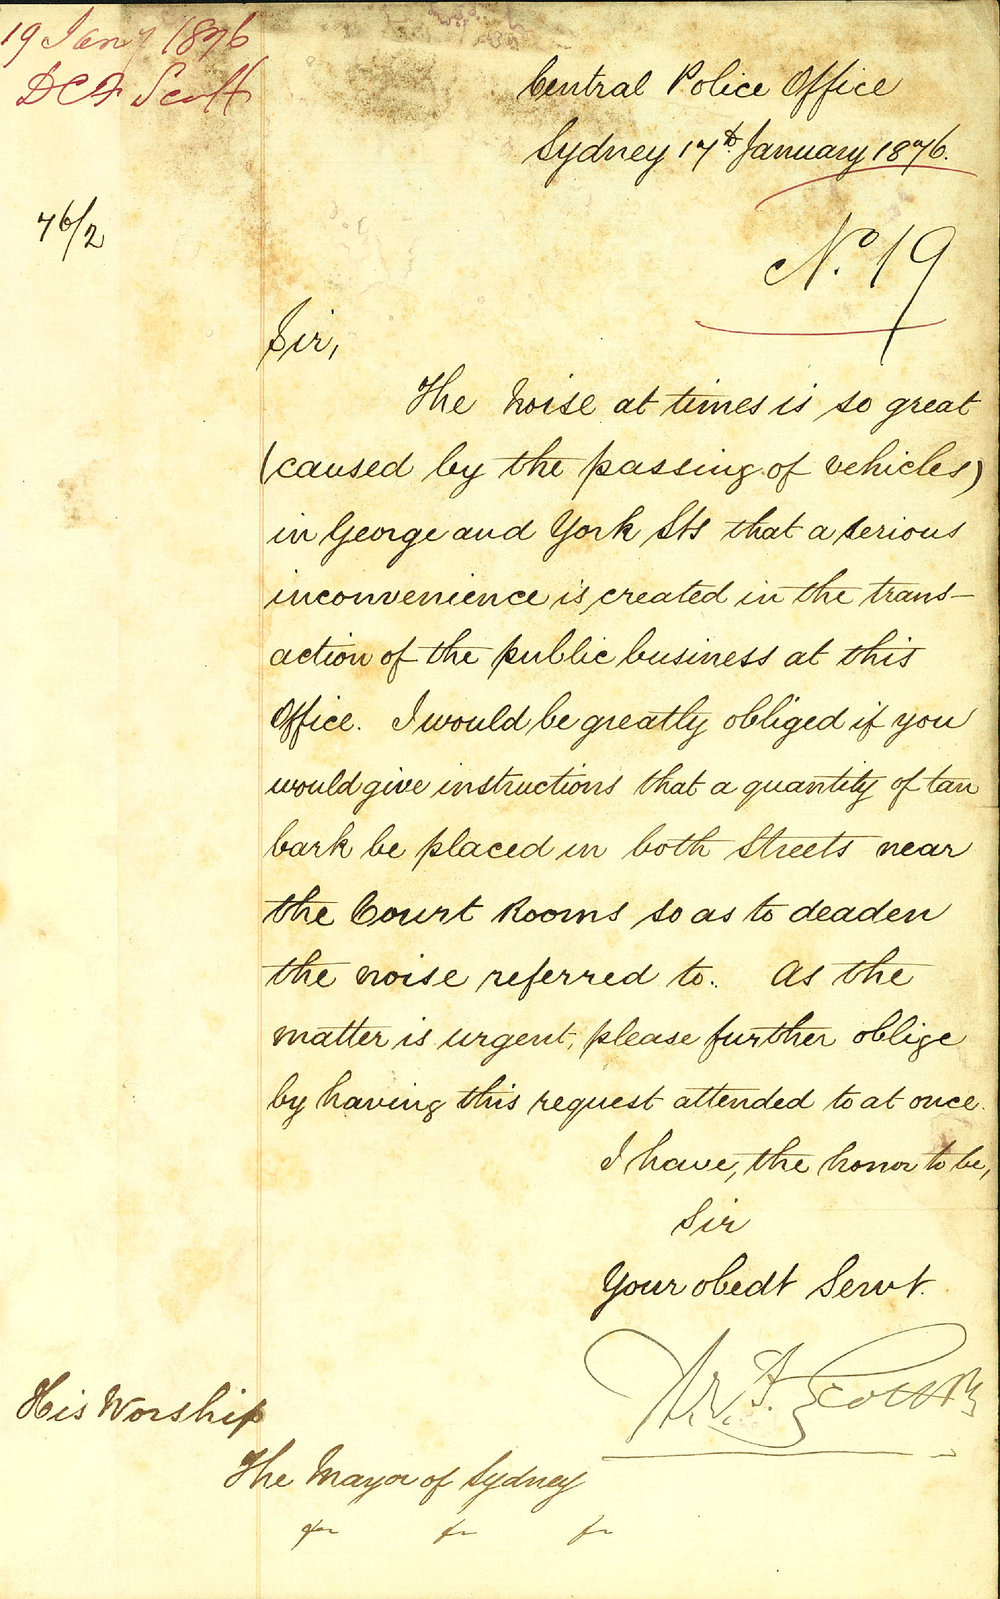 19 Jany 1876
DCF Scott
Central Police Office
Sydney 17th January 1876.
76/2
No. 19
Sir,
The Noise at times is so great
(caused by the passing of vehicles)
in George and York Sts that a serious
inconvenience is created in the trans-
action of the public business at this
Office. I would be greatly obliged if you
would give instructions that a quantity of tan
bark be placed in both Streets near
the Court Rooms so as to deaden
the noise referred to. As the
matter is urgent, please further oblige
by having this request attended to at once.
I have, the honor to be,
Sir
Your obedt Servt.
Scott
His Worship
The Mayor of Sydney